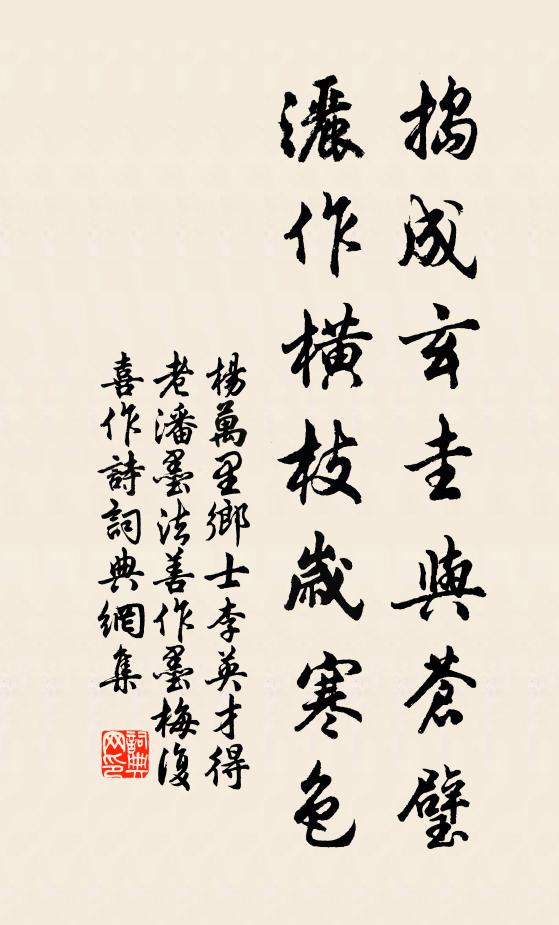 搗成玄圭與蒼璧
灑作橫枝歲寒色
楊萬里鄉士李英才得
老潘墨法善作墨梅復
喜作詩詞典網集
詞典
网印